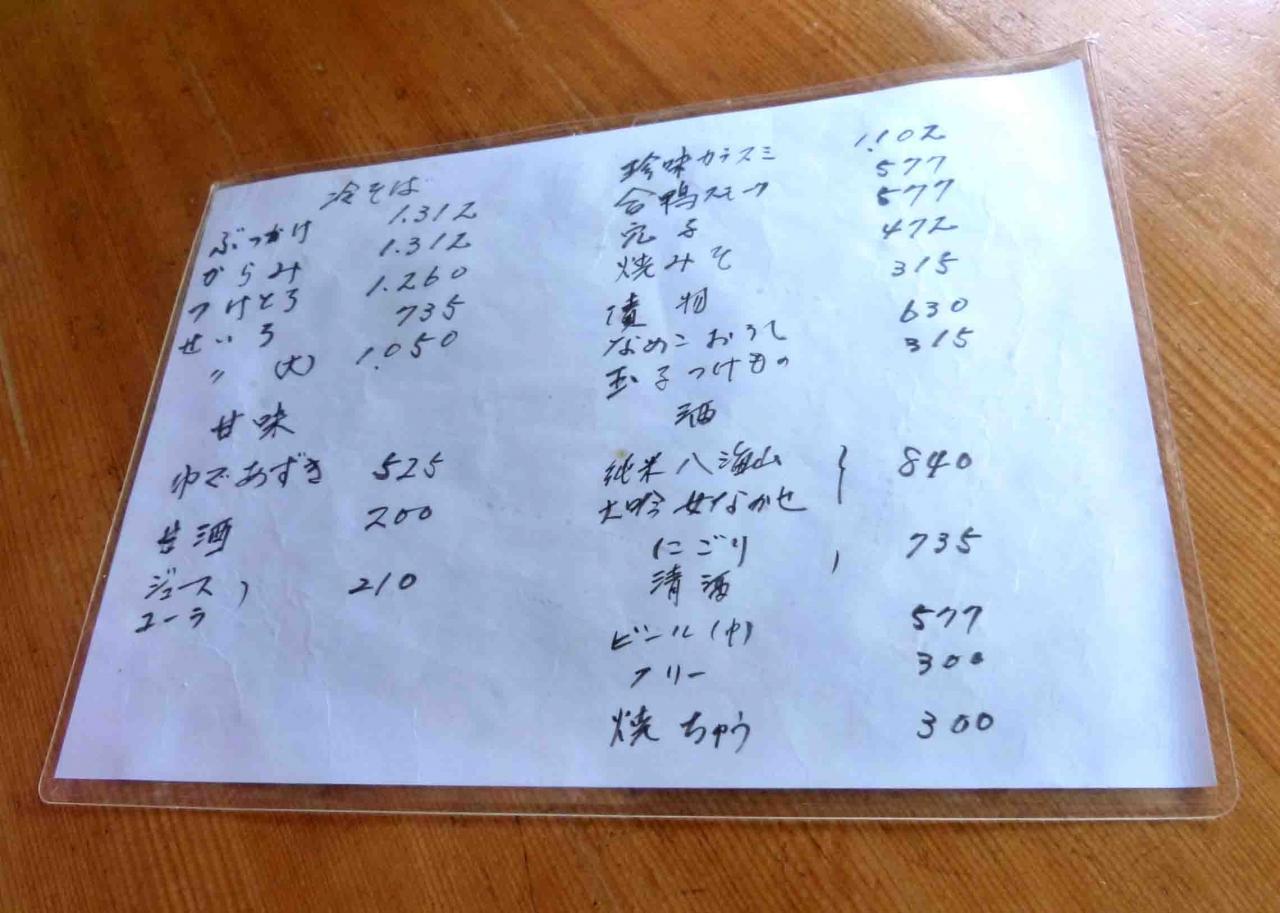 冷そば
ぶっかけ 1.312
からみ 1.312
つけとろ 1.260
せいろ 735
〃 (大) 1.050
甘味
ゆであずき 525
甘酒 200
ジュース ) 210
コーラ
珍味カラスミ 1.102
合鴨スモーク 577
穴子 577
焼みそ 472
漬物 315
なめこおろし 630
玉子つけもの 315
酒
純米八海山 } 840
大吟 女なかせ
にごり , 735
清酒
ビール(中) 577
フリー 300
焼ちゅう 300